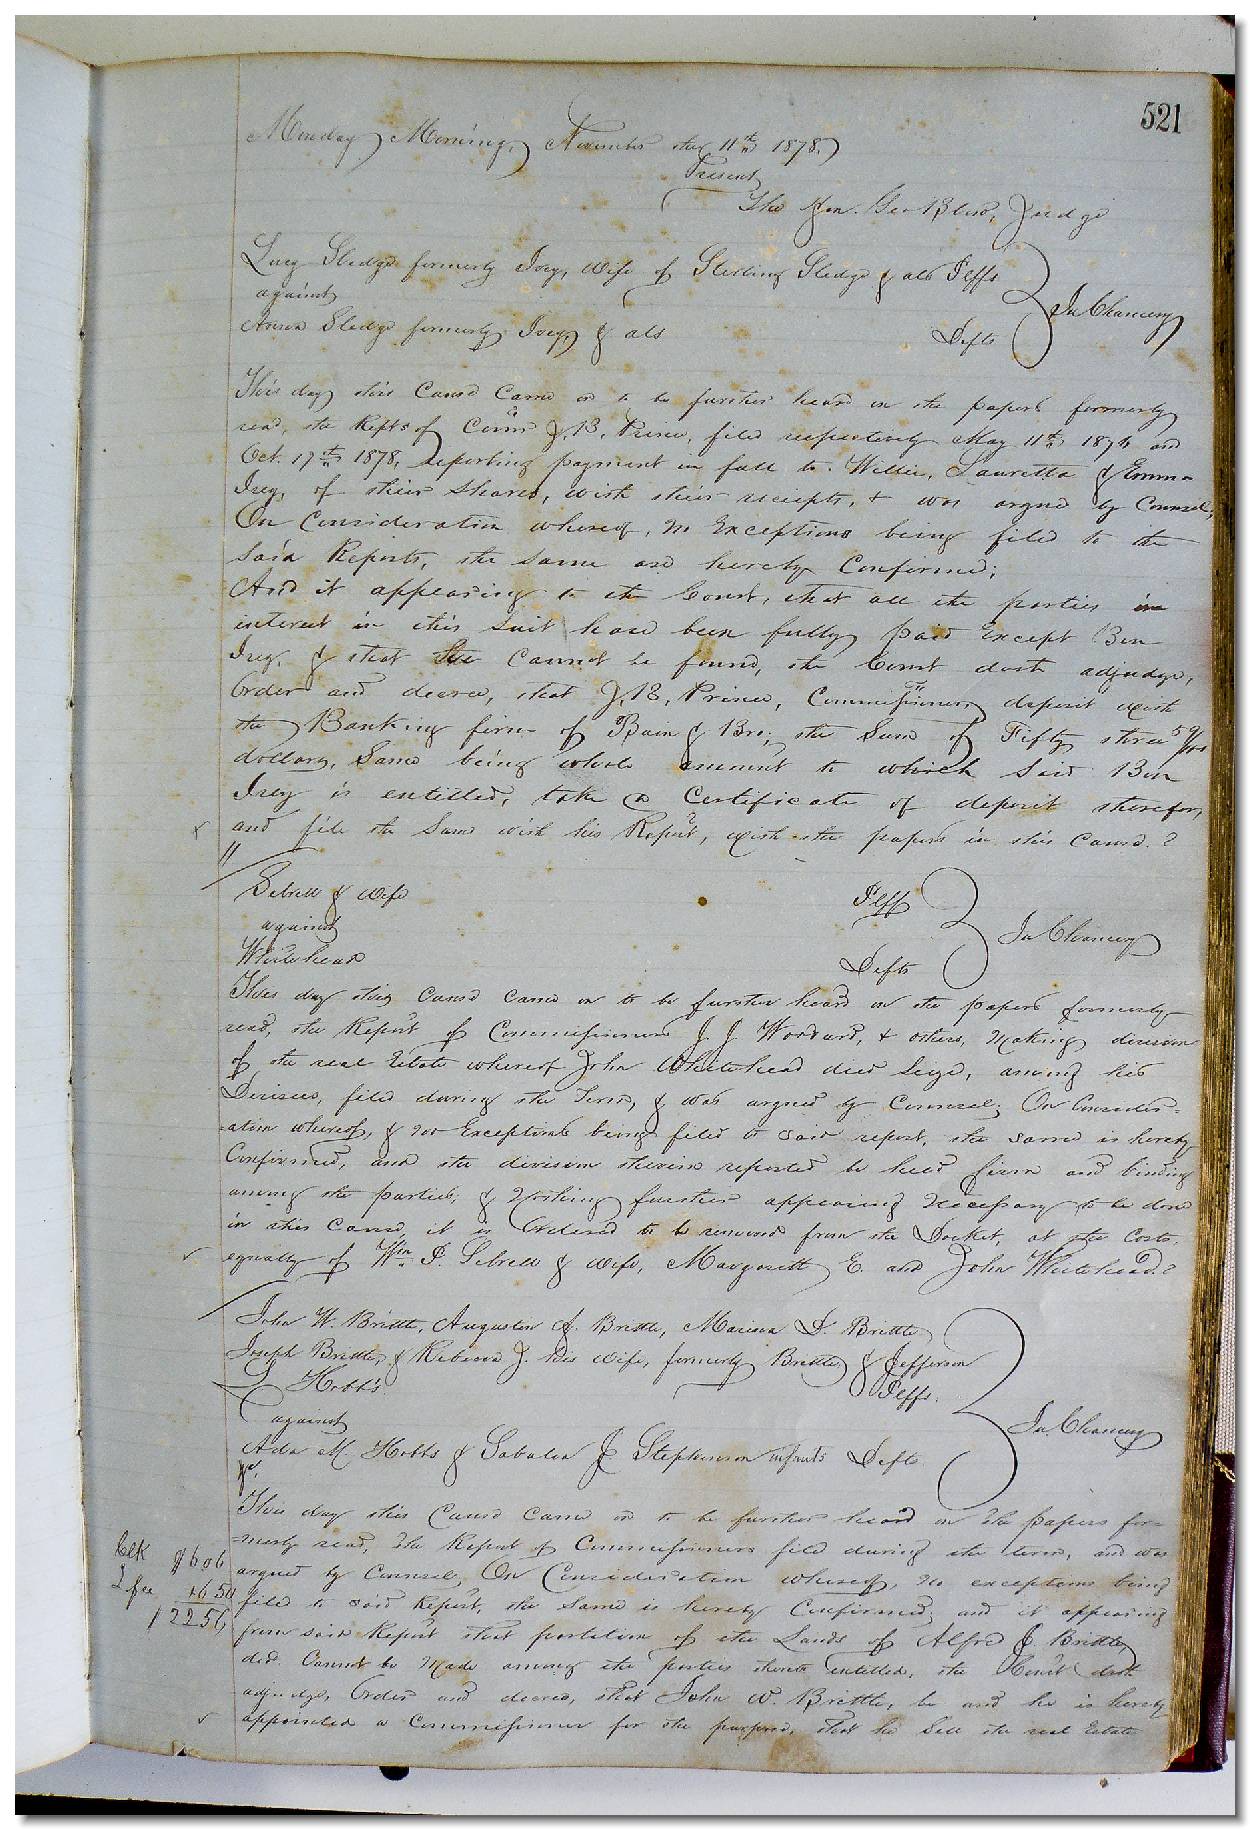 521
Monday Morning, November the 11th 1878.
Present
The Hon. Geo Blow, Judge
Lucy Sledge formerly Ivey, wife of Sterling Sledge & als Plffs
against
In Chancery
Anson Sledge formerly Ivey, & als Defts
This day this Cause came on to be further heard on the papers formerly
read, the Repts of Comr J. B. Prince, filed respectively May 11th 1874 and
Oct. 17th 1878, reporting payment in full to Willie, Lauretta & Emma
Ivey, of their shares, with their receipts, & was argued by Counsel,
On Consideration whereof, no Exceptions being filed to the
said Reports, the same are hereby Confirmed;
And it appearing to the Court, that all the parties in
interest in this suit have been fully paid Except Ben
Ivey, & that he cannot be found, the Court doth adjudge,
Order and decree, that J. B. Prince, Commissioner deposit with
the Banking firm of Bain & Bro; the Sum of Fifty three
dollars, Same being whole amount to which said Ben
Ivey is entitled, take a Certificate of deposit therefor,
and file the Same with his Report, with the papers in this Cause.
Sebrell & wife Plff
against
In Chancery
Whitehead Defts
This day this Cause came on to be further heard on the papers formerly
read, the Report of Commissioners J J Woodard, & others, making division
of the real Estate whereof John Whitehead died Seized, among his
Devisees, filed during the Term, & was argued by Counsel; On Consider=
-ation whereof, & no Exceptions being filed to said report, the same is hereby
Confirmed, and the division therein reported be held firm and binding
among the parties; & Nothing further appearing necessary to be done
in this Cause it is Ordered to be removed from the Docket, at the Costs,
equally of Wm P. Sebrell & wife, Margarett E. and John Whitehead.
John W. Brittle, Augustin A. Brittle, Marina D. Brittle
Joseph Brittle, & Rebecca J. his wife, formerly Brittle & Jefferson
Hobbs Plffs.
against
In Chancery
Ada M Hobbs & J Stephenson infants Defts
This day this Cause came on to be further heard on the papers for=
=merly read, the Report of Commissioners filed during the term, and was
argued by Counsel, On Consideration whereof, no exceptions being
filed to said Report, the same is hereby Confirmed; and it appearing
from said Report that partition of the Lands of Alfred J. Brittle
decd. Cannot be made among the parties thereto entitled, the Court doth
adjudge, Order and decree, that John W. Brittle, be and he is hereby
appointed a Commissioner for the purpose, that he sell the real Estate
Clk $6 06
fee 16 50
22 56